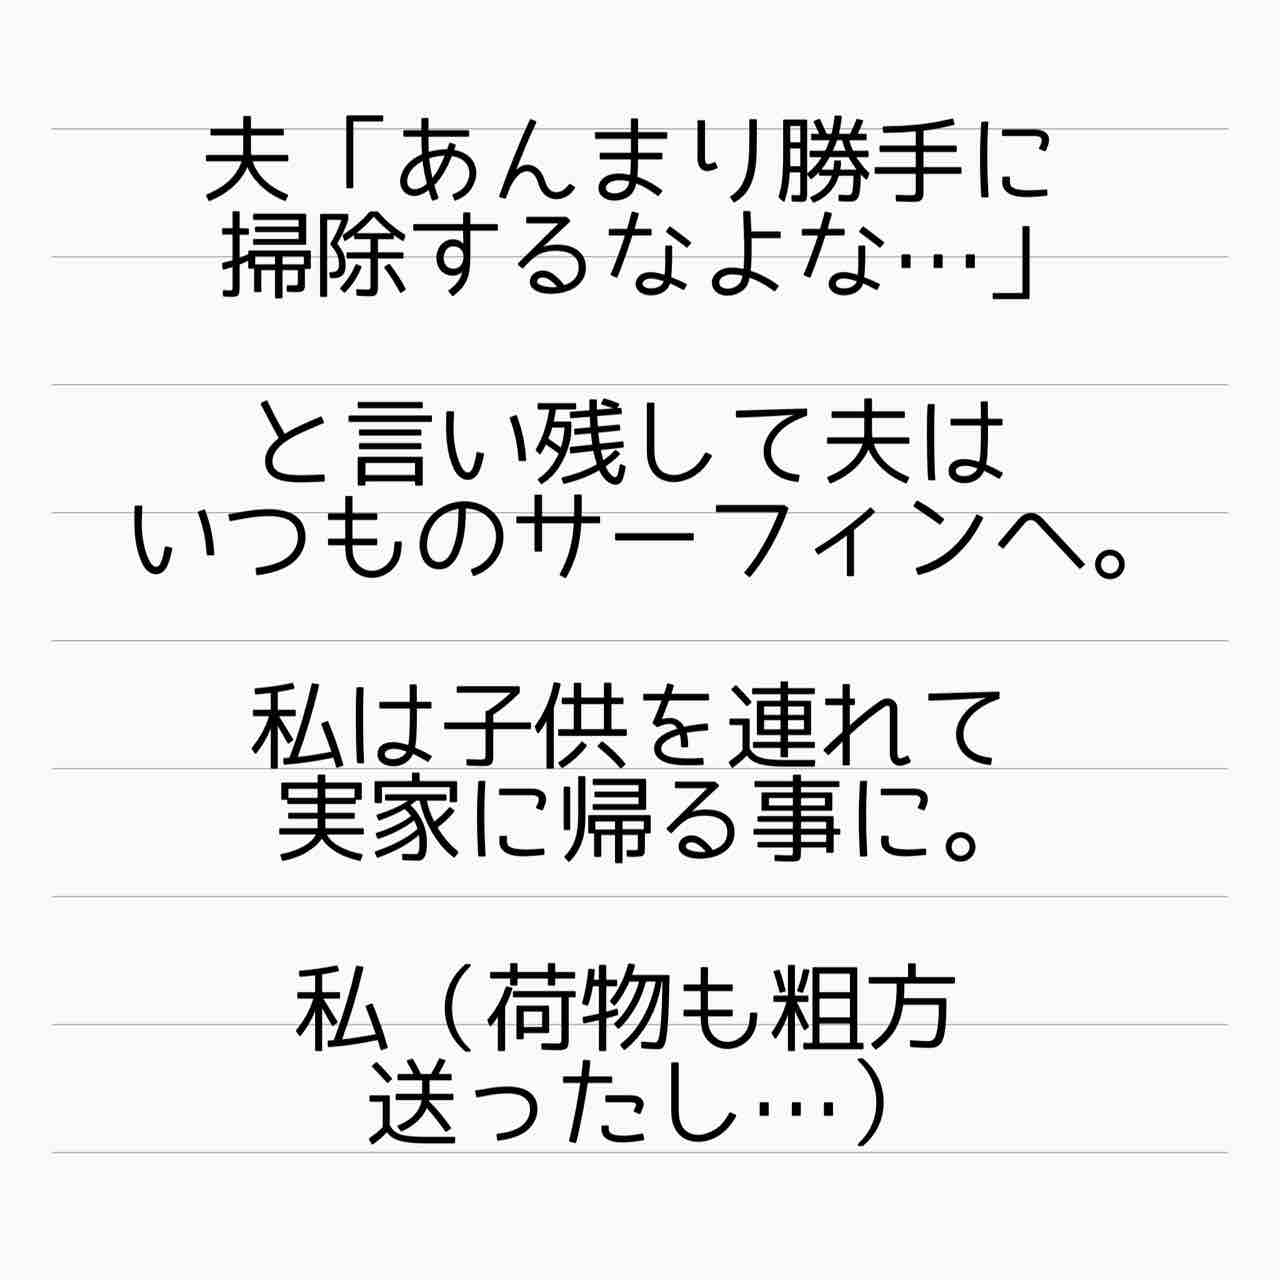 夫「あんまり勝手に
掃除するなよな…」
と言い残して夫は
いつものサーフィンへ。
私は子供を連れて
実家に帰る事に。
私（荷物も粗方
送ったし…）